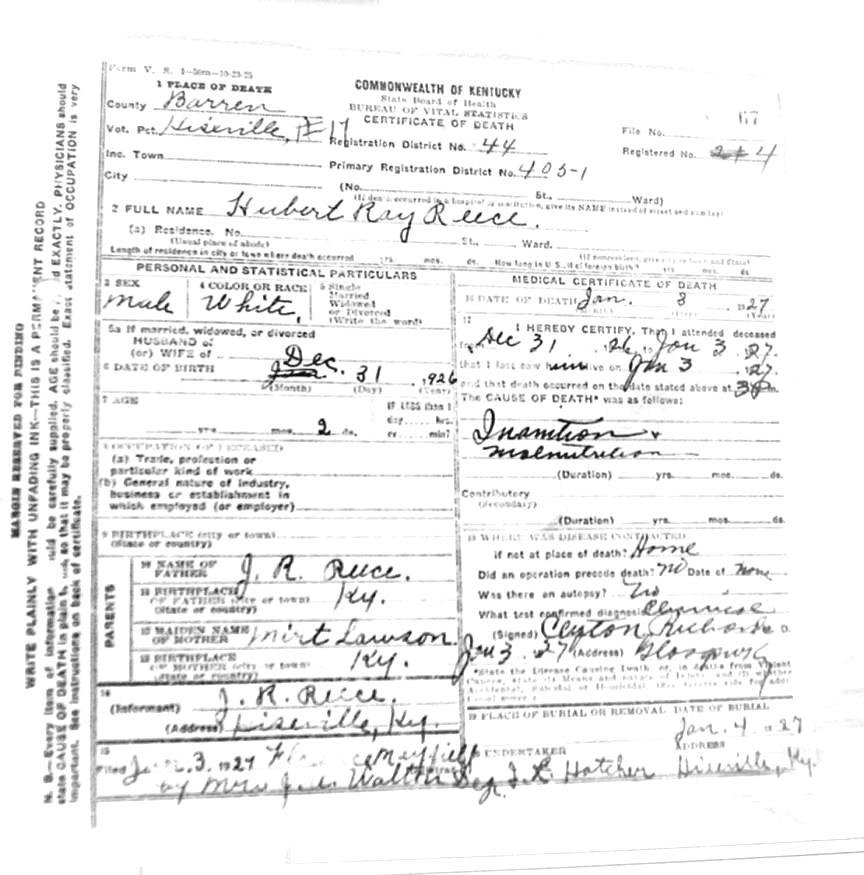 Form V. S. 1—50m—10-23-25
1 PLACE OF DEATH
County Barren
Vot. Pct. Hiseville, # 17
Inc. Town
City
COMMONWEALTH OF KENTUCKY
State Board of Health
BUREAU OF VITAL STATISTICS
CERTIFICATE OF DEATH
Registration District No. 44
Primary Registration District No. 405-1
File No. 67
Registered No. 4
(No. St., Ward)
(If death occurred in a hospital or institution, give its NAME instead of street and number)
2 FULL NAME Hubert Ray Reece.
(a) Residence. No. St., Ward.
(Usual place of abode) (If nonresident, give city or town and State)
Length of residence in city or town where death occurred yrs. mos. ds. How long in U. S., if of foreign birth? yrs. mos. ds.
PERSONAL AND STATISTICAL PARTICULARS
3 SEX
Male
4 COLOR OR RACE
White,
5 Single
Married
Widowed
or Divorced
(Write the word)
5a If married, widowed, or divorced
HUSBAND of
(or) WIFE of
6 DATE OF BIRTH Dec. 31, 1926
(Month) (Day) (Year)
7 AGE
yrs. mos. 2 ds.
IF LESS than 1
day hrs.
or min?
8 OCCUPATION OF DECEASED
(a) Trade, profession or
particular kind of work
(b) General nature of industry,
business or establishment in
which employed (or employer)
9 BIRTHPLACE (city or town)
(State or country)
PARENTS
10 NAME OF
FATHER J. R. Reece.
11 BIRTHPLACE
OF FATHER (city or town) Ky.
(State or country)
12 MAIDEN NAME
OF MOTHER Mirt Lawson
13 BIRTHPLACE
OF MOTHER (city or town) Ky.
(State or country)
14
(Informant) J. R. Reece.
(Address) Hiseville, Ky.
15
Filed Jan. 3, 1927
by Mrs J. A.
MEDICAL CERTIFICATE OF DEATH
16 DATE OF DEATH Jan. 3 1927
17
I HEREBY CERTIFY, That I attended deceased
from Dec 31, 26, to Jan 3, 27.
that I last saw him alive on Jan 3, 27.
and that death occurred on the date stated above at 3 P m.
The CAUSE OF DEATH* was as follows:
Inanition &
malnutrition
(Duration) yrs. mos. ds.
Contributory
(Secondary)
(Duration) yrs. mos. ds.
18 WHERE WAS DISEASE CONTRACTED
if not at place of death? Home
Did an operation precede death? No Date of None
Was there an autopsy? No
What test confirmed diagnosis Clinical
(Signed) Clyton Richards
Jan 3, 27 (Address) Glasgow Ky
*State the Disease Causing Death, or, in deaths from Violent
Causes, state (1) Means and nature of Injury; and (2) whether
Accidental, Suicidal or Homicidal.
19 PLACE OF BURIAL OR REMOVAL DATE OF BURIAL
Jan. 4, 1927
20 UNDERTAKER ADDRESS
Hatcher Hiseville, Ky.
MARGIN RESERVED FOR BINDING
WRITE PLAINLY WITH UNFADING INK—THIS IS A PERMANENT RECORD
N. B.—Every item of information should be carefully supplied. AGE should be EXACTLY. PHYSICIANS should
state CAUSE OF DEATH in plain so that it may be properly classified. Exact statement of OCCUPATION is very
important. See instructions on back of certificate.